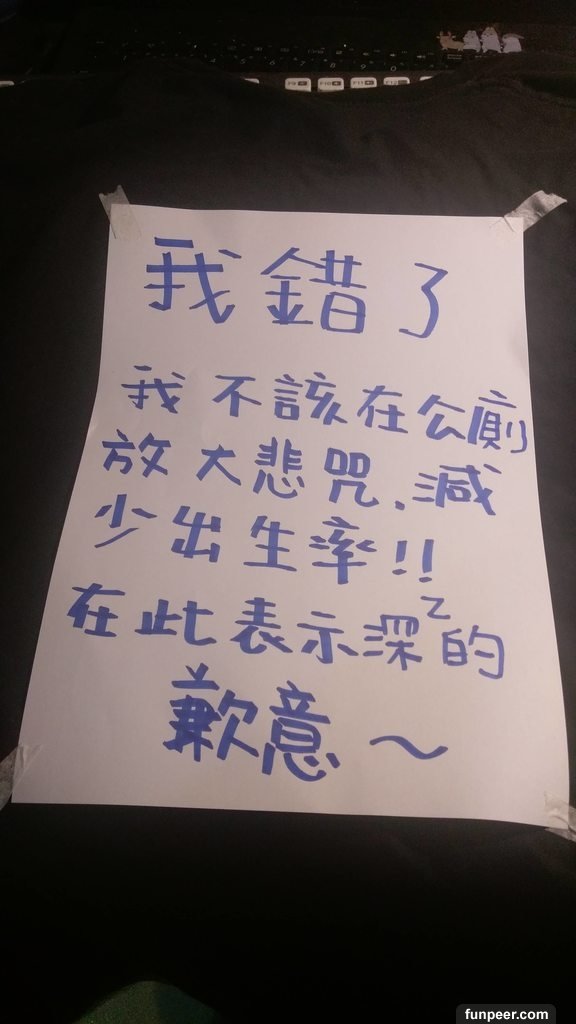 F9 F10 F11 F12
我錯了
我不該在公廁
放大悲咒、減
少出生率!!
在此表示深ㄛ的
歉意～
funpeer.com